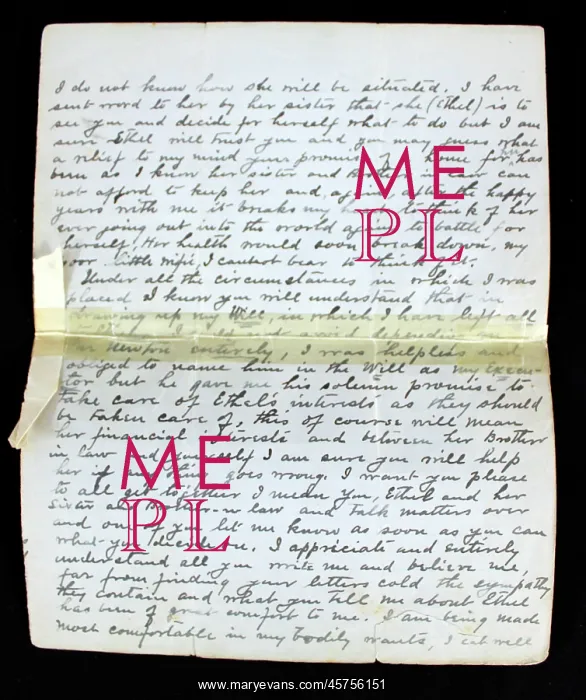 I do not know how she will be situated. I have
sent word to her by her sister that she (Ethel) is to
see you and decide for herself what to do but I am
sure Ethel will trust you and you may guess what
a relief to my mind your promise of a home for her has
been as I know her sister and in law can
not afford to keep her and, after all the happy
years with me it breaks my to think of her
ever going out into the world again to battle for
herself. Her health would soon break down, my
poor little wife, I cannot bear to think of it.
Under all the circumstances in which I was
placed I know you will understand that in
drawing up my Will, in which I have left all
to
Mr Newton entirely, I was helpless and
obliged to name him in the Will as my Execu-
tor but he gave me his solemn promise to
take care of Ethel's interests as they should
be taken care of, this of course will mean
her financial interests and between her Brother
in law and yourself I am sure you will help
her if anything goes wrong. I want you please
to all get together I mean you, Ethel and her
Sister and Brother-in law and talk matters over
and one of you let me know as soon as you can
what you decide on. I appreciate and entirely
understand all you write me and believe me,
far from finding your letters cold the sympathy
they contain and what you tell me about Ethel
has been of great comfort to me. I am being made
most comfortable in my bodily wants, I eat well
ME
PL
ME
PL
www.maryevans.com/45756151